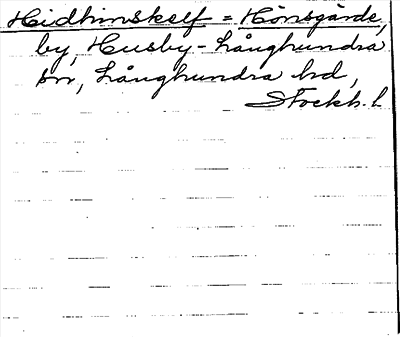 Hidhinskelf = Hönsgärde,
by, Husby-Långhundra
sn, Långhundra hd,
Stockh. l